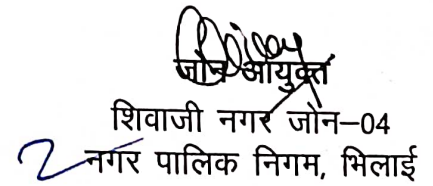 जोन आयुक्त
शिवाजी नगर जोन-04
नगर पालिक निगम, भिलाई